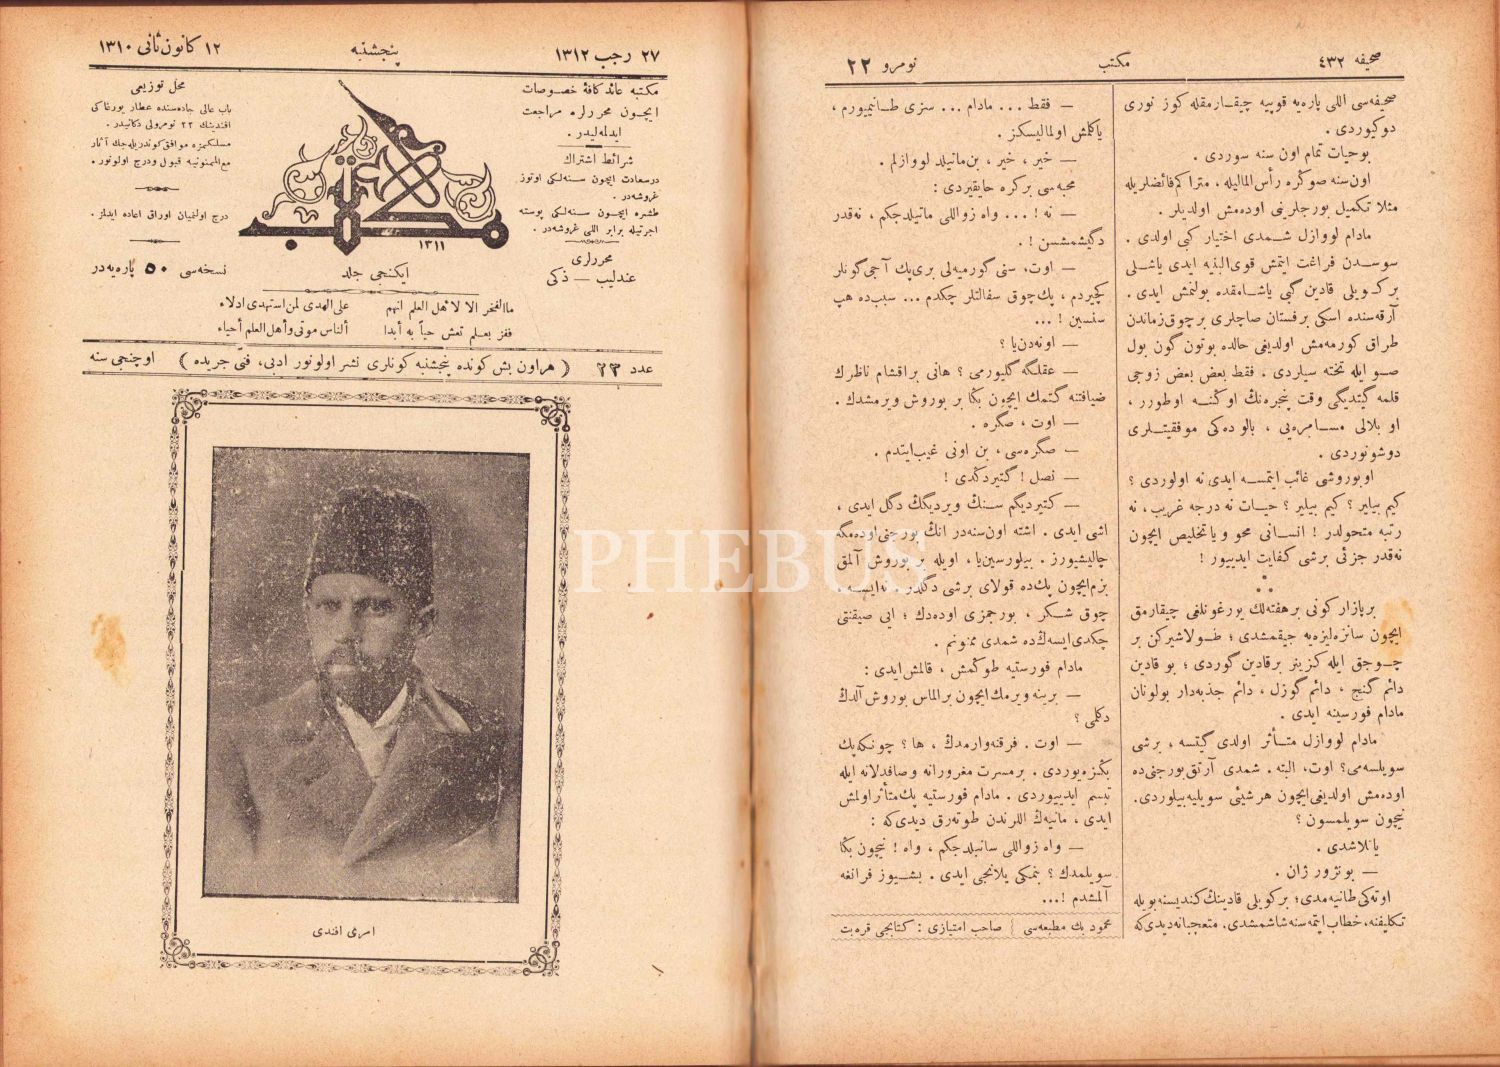 صحیفه ٤٣٢
مکتب
نومرو ٢٢
صحیفه‌سی اللی پاره‌یه قوپیه چیقارمقله کوز نوری
دوکیوردی .
بوحیات تمام اون سنه سوردی .
اون‌سنه صوڭره رأس‌المالیله ، متراکم فائضلریله
مثلا تکمیل بورجلرینی اوده‌مش اولدیلر .
مادام لووازل شمدی اختیار کبی اولدی .
سوسدن فراغت ایتمش قوی‌البنیه ایدی یاشلی
برکویلی قادین گبی یاشامقده بولنمش ایدی .
آرقه‌سنده اسکی برفستان صاچلری برچوق زماندن
طراق کورمه‌مش اولدیغی حالده بوتون گون بول
صو ایله تخته سیلردی . فقط بعض بعض زوجی
قلمه گیتدیگی وقت پنجره‌نڭ اوڭنه اوطورر ،
او بلالی مسامره‌یی ، بالوده‌کی موفقیتلری
دوشونوردی .
اوبوروشی غائب ایتمسه ایدی نه اولوردی ؟
کیم بیلیر ؟ کیم بیلیر ؟ حیات نه درجه غریب ، نه
رتبه متحولدر ! انسانی محو ویا تخلیص ایچون
نه‌قدر جزئی برشی کفایت ایدییور !
برپازار کونی برهفته‌لك یورغونلغی چیقارمق
ایچون سانزه‌لیزه‌یه چیقمشدی ؛ طولاشیرکن بر
چوجق ایله کزینیر برقادین گوردی ؛ بو قادین
دائم گنج ، دائم گوزل ، دائم جذبه‌دار بولونان
مادام فورسینه ایدی .
مادام لووازل متأثر اولدی گیتسه ، برشی
سویلسه‌می؟ اوت ، البته . شمدی آرتق بورجنی‌ده
اوده‌مش اولدیغی ایچون هرشیئی سویلیه‌بیلوردی.
نیچون سویلمسون ؟
یانلاشدی .
— بونژور ژان .
اوته‌کی طانیه‌مدی ؛ برکویلی قادینڭ کندیسنه بویله
تکلیفنه ، خطاب ایتمه‌سنه شاشمشدی . متعجبانه دیدی‌که
— فقط ... مادام ... سزی طانیمیورم ،
یاکلمش اولمالیسکز .
— خیر ، خیر ، بن ماتیلد لووازلم .
محبه‌سی برکره حایقیردی :
— نه ! ... واه زواللی ماتیلدجکم ، نه‌قدر
دگیشمشسن !
— اوت ، سنی گورمیه‌لی بری پك آجی گونلر
کچیردم ، پك چوق سفالتلر چکدم ... سبب‌ده هپ
سنسین ! ...
— اونه‌دن‌یا ؟
— عقلڭه گلیورمی ؟ هانی براقشام ناظرك
ضیافتنه گتمك ایچون بڭا بر بوروش ویرمشدك .
— اوت ، صڭره .
— صڭره‌سی ، بن اونی غیب‌ایتدم .
— نصل ! گتیردڭدی !
— کتیردیگم سنڭ ویردیگڭ دگل ایدی ،
اشی ایدی . اشته اون‌سنه‌در انڭ بورجنی اوده‌مگه
چالیشیورز . بیلورسین‌یا ، اویله بر بوروش آلمق
بزم‌ایچون پك‌ده قولای برشی دگلدر . نه‌ایسه ،
چوق شکر ، بورجمزی اوده‌دك ؛ ایی صیقنتی
چکدی‌ایسه‌ك‌ده شمدی ممنونم .
مادام فورستیه طوڭمش ، قالمش ایدی :
— برینه ویرمك ایچون برالماس بوروش آلدڭ
دکلمی ؟
— اوت . فرقنه‌وارمدڭ ، ها ؟ چونکه پك
بڭزه‌یوردی . برمسرت مغرورانه وصافدلانه ایله
تبسم ایدییوردی . مادام فورستیه پك متأثر اولمش
ایدی ، مانیه‌ڭ اللرندن طوته‌رق دیدی‌که :
— واه زواللی ماتیلدجکم ، واه ! نیچون بڭا
سویلمدڭ ؟ بنمکی یلانجی ایدی . بشیوز فرانغه
آلمشدم !...
محمود بك مطبعه‌سی { صاحب امتیازی : کتابجی قره‌بت
٢٧ رجب ١٣١٢
پنجشنبه
١٢ کانون ثانی ١٣١٠
مکتبه عائد کافهٔ خصوصات
ایچون محررلره مراجعت
ایدلمه‌لیدر .
شرائط اشتراك
درسعادت ایچون سنه‌لکی اوتوز
غروشه‌در .
طشره ایچون سنه‌لکی پوسته
اجرتیله برابر اللی غروشه‌در .
محررلری
عندلیب — ذکی
مکتب
١٣١١
ایکنجی جلد
محل توزیعی
باب عالی جاده‌سنده عطار یورغاکی
افندینك ٢٢ نومرولی دکانیدر .
مسلکمزه موافق کوندریله‌جك آثار
مع‌الممنونیه قبول ودرج اولونور .
درج اولنمیان اوراق اعاده ایدلمز .
نسخه‌سی ٥٠ پاره‌یه‌در
ماالفخر الا لأهل العلم انهم على الهدى لمن استهدى ادلاء
ففز بعلم تعش حیاً به أبدا ألناس موتى وأهل العلم أحیاء
عدد ٢٣ ( هراون بش کونده پنجشنبه کونلری نشر اولونور ادبی، فنی جریده ) اوچنجی سنه
امری افندی
PHEBUS